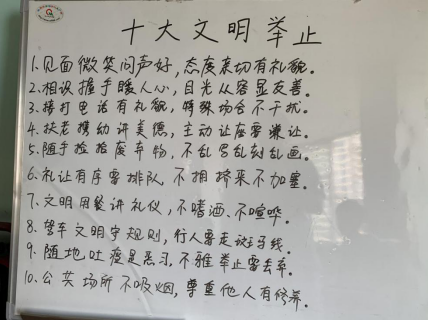 十大文明举止
1.见面微笑问声好,态度亲切有礼貌。
2.相识握手暖人心,目光从容显友善。
3.接打电话有礼貌,特殊场合不干扰。
4.扶老携幼讲美德,主动让座要谦让。
5.随手捡拾废弃物,不乱写乱刻乱画。
6.礼让有序要排队,不拥挤来不加塞。
7.文明用餐讲礼仪,不嗜酒、不喧哗。
8.驾车文明守规则,行人要走斑马线。
9.随地吐痰是恶习,不雅举止要去弃。
10.公共场所不吸烟,尊重他人有修养。